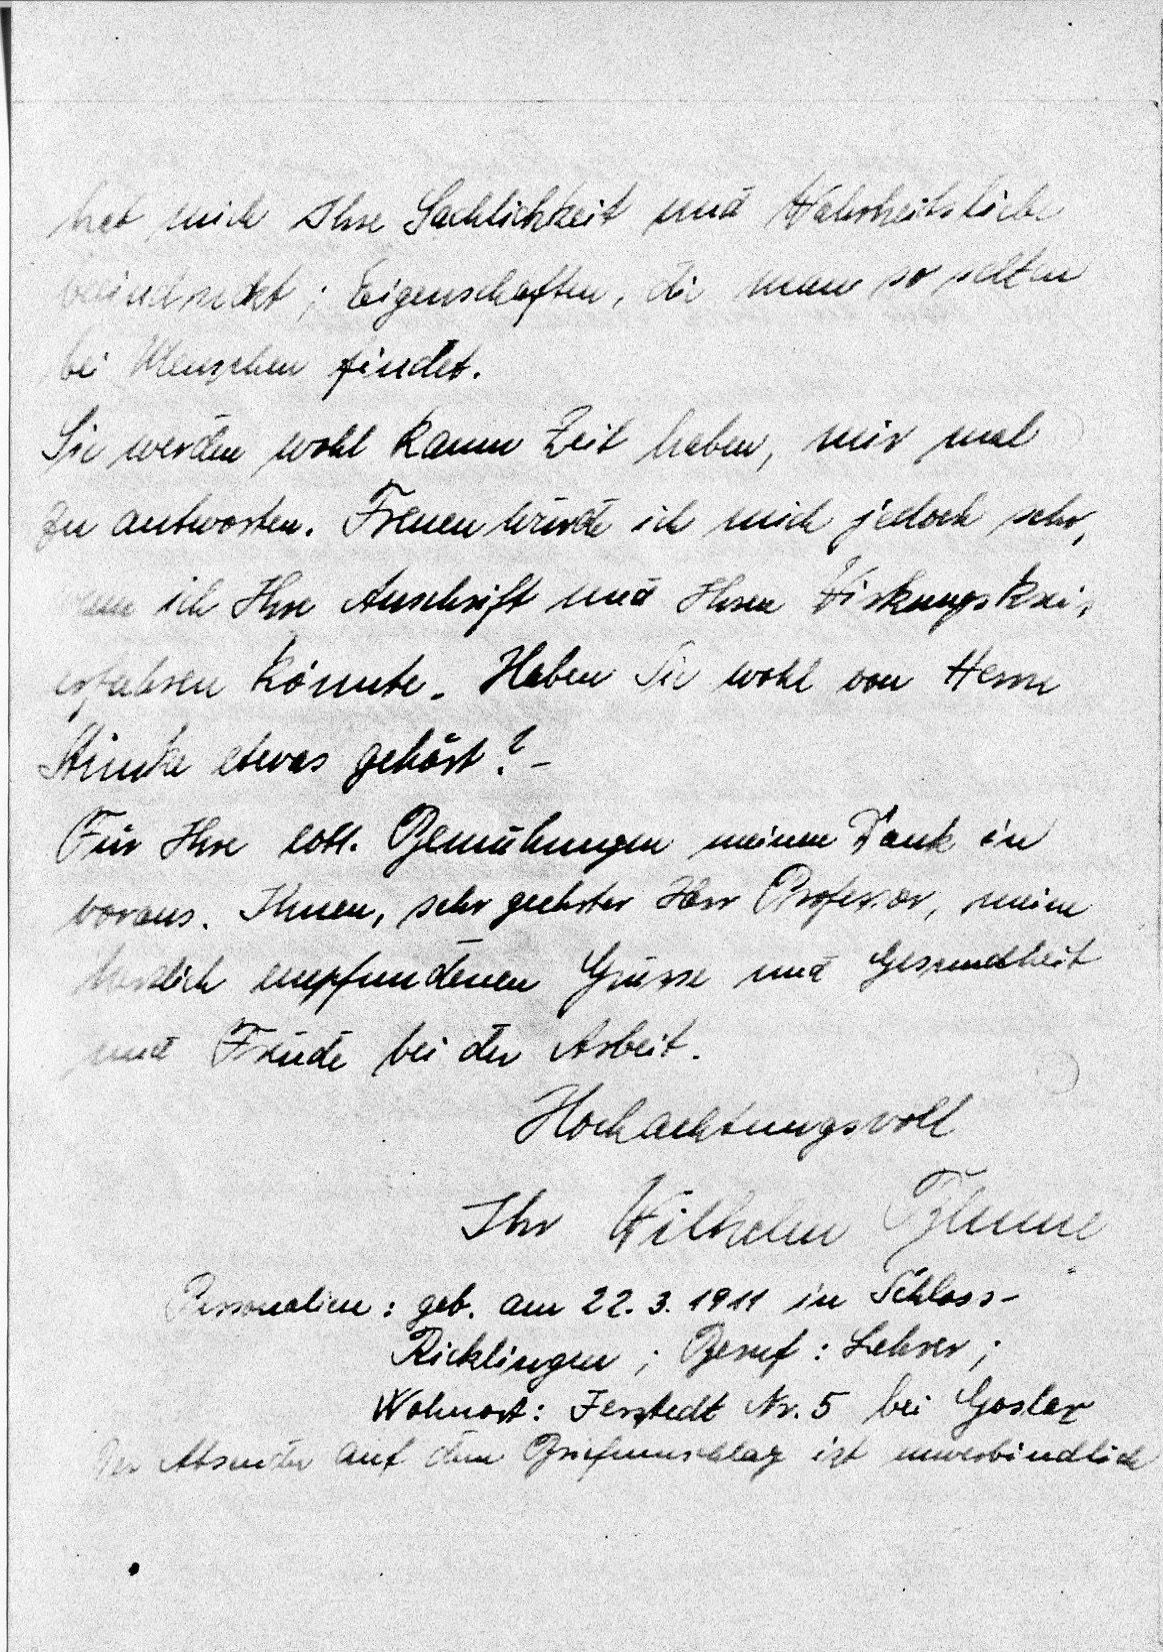 hat mich Ihre Sachlichkeit und Wahrheitsliebe
beeindruckt; Eigenschaften, die man so selten
bei Menschen findet.
Sie werden wohl kaum Zeit haben, mir mal
zu antworten. Freuen würde ich mich jedoch sehr,
wenn ich Ihre Anschrift und Ihren Wirkungskreis
erfahren könnte. Haben Sie wohl von Herrn
etwas gehört? –
Für Ihre evtl. Bemühungen meinen Dank im
voraus. Ihnen, sehr geehrter Herr Professor, meine
herzlich empfundenen Grüsse und Gesundheit
und Freude bei der Arbeit.
Hochachtungsvoll
Ihr Wilhelm Blume
Personalien: geb. am 22.3.1911 in Schloss-
Ricklingen; Beruf: Lehrer;
Wohnort: Jerstedt Nr. 5 bei Goslar
Der Absender auf dem Briefumschlag ist unverbindlich